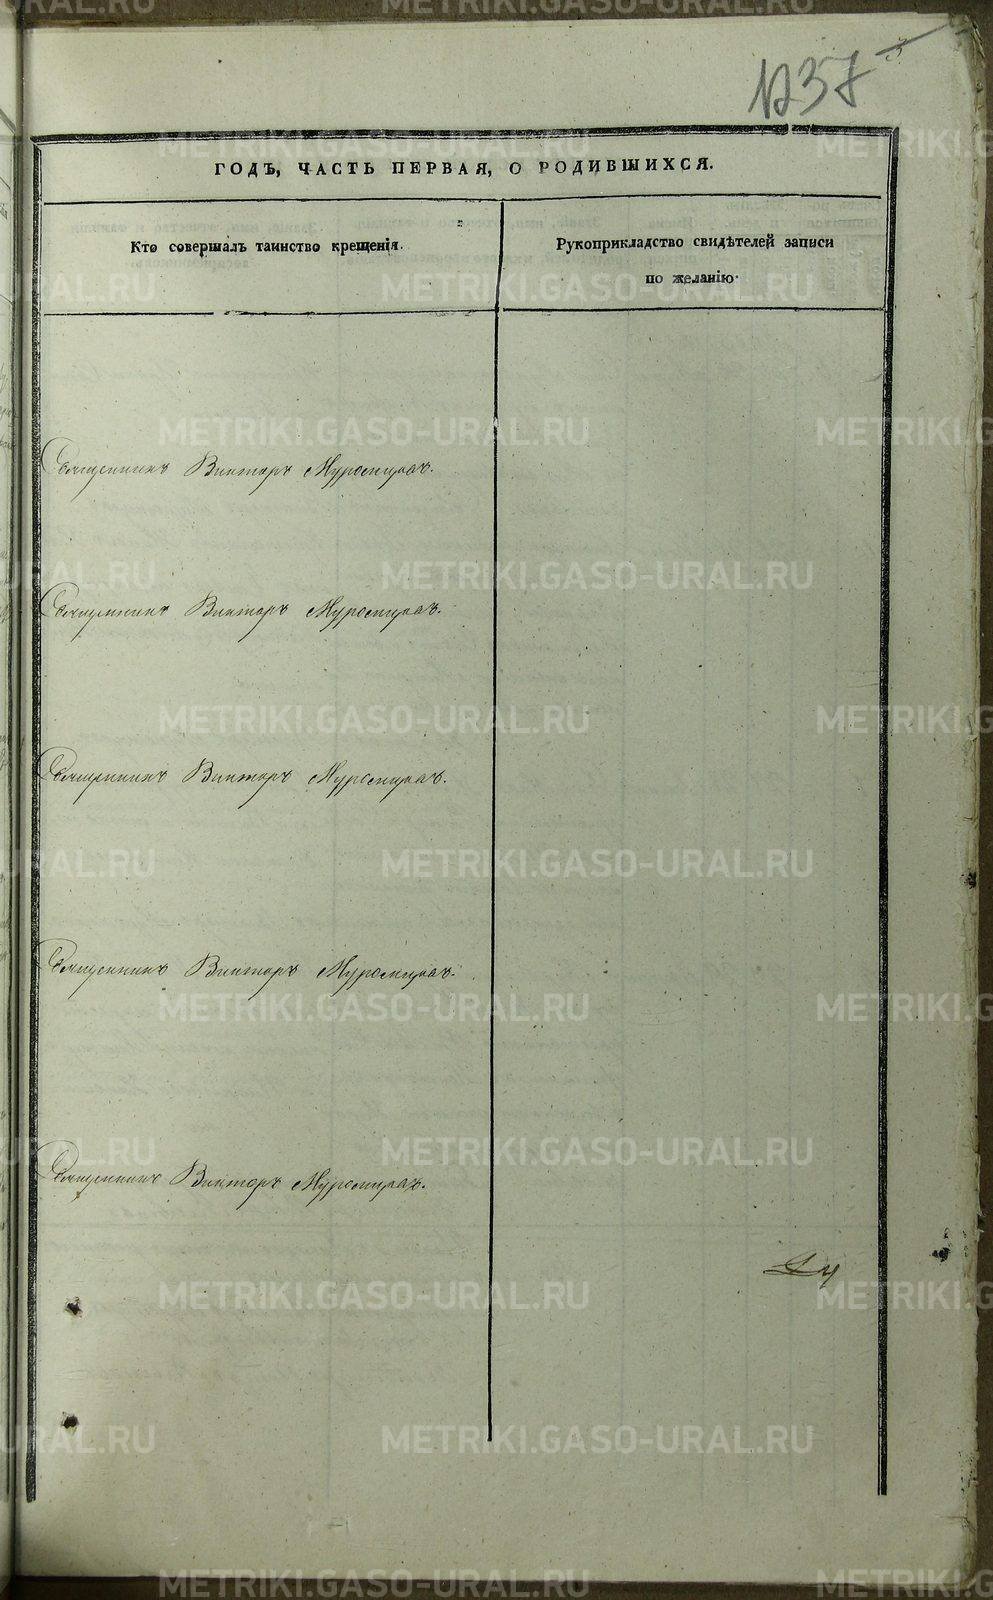 1237
ГОДЪ, ЧАСТЬ ПЕРВАЯ, О РОДИВШИХСЯ.
Кто совершалъ таинство крещенія.
Рукоприкладство свидѣтелей записи
по желанію.
Священникъ Викторъ
Священникъ Викторъ
Священникъ Викторъ
Священникъ Викторъ
Священникъ Викторъ
METRIKI.GASO-URAL.RU